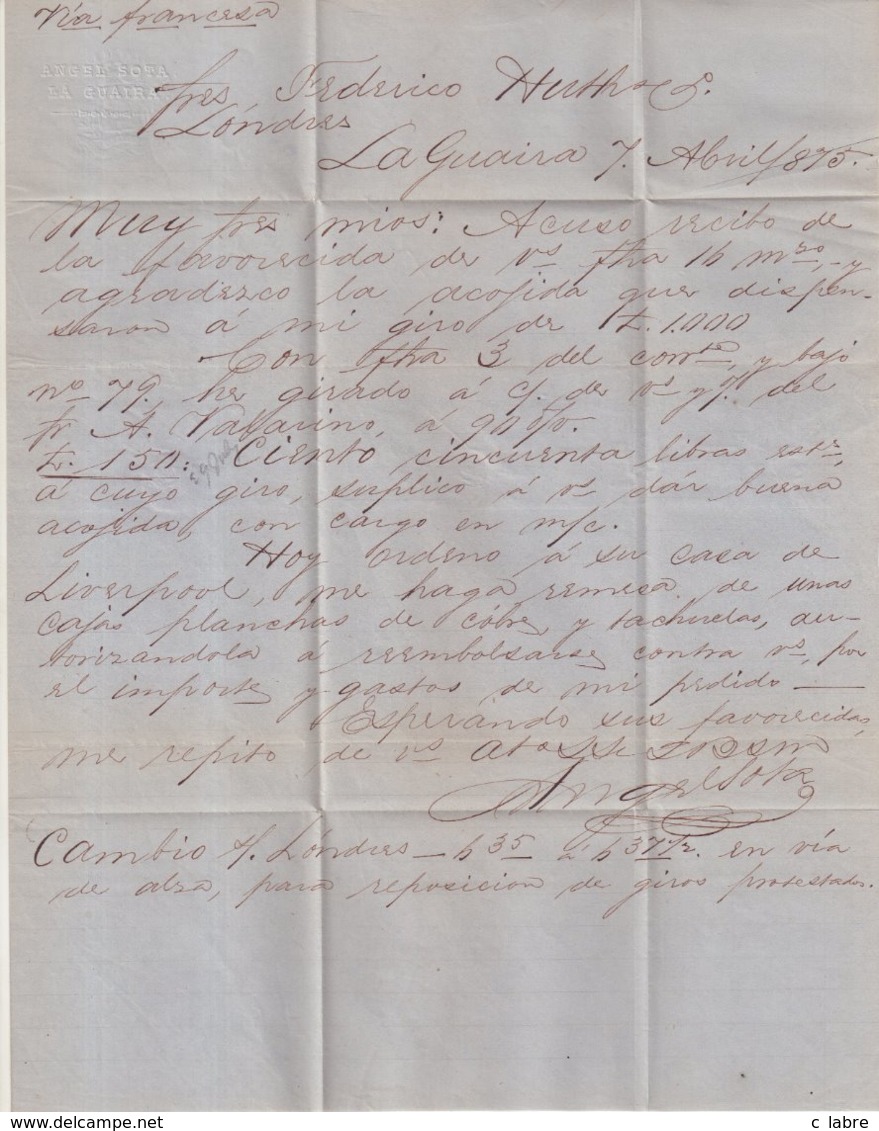 Vía francesa
ANGEL SOTA
LA GUAIRA
Sres Federico Huth & Co.
Lóndres
La Guaira 7. Abril/875.
Muy Sres mios: Acuso recibo de
la favorecida de Vs. fha 16 mzo, y
agradezco la acojida que dispen-
saron á mi giro de £.1.000
Con fha 3 del corrte, y bajo
no 79, he girado á c/. de Vs y/. del
Sr A. Valarino, á 90 d/v.
£. 150: Ciento cincuenta libras estr,
á cuyo giro, suplico á Vs dár buena
acojida, con cargo en m/c.
Hoy ordeno á su casa de
Liverpool, me haga remesa de unas
cajas planchas de cóbre, y tachuelas, au-
torizandola á reembolsarse contra Vs, por
el importe y gastos de mi pedido —
Esperándo sus favorecidas,
me repito de Vs Ato S.S. Q B S M
Angel Sota
Cambio s/. Lóndres — $6 35 á $6 37 1/2. en vía
de alza, para reposicion de giros protestados.
c labre